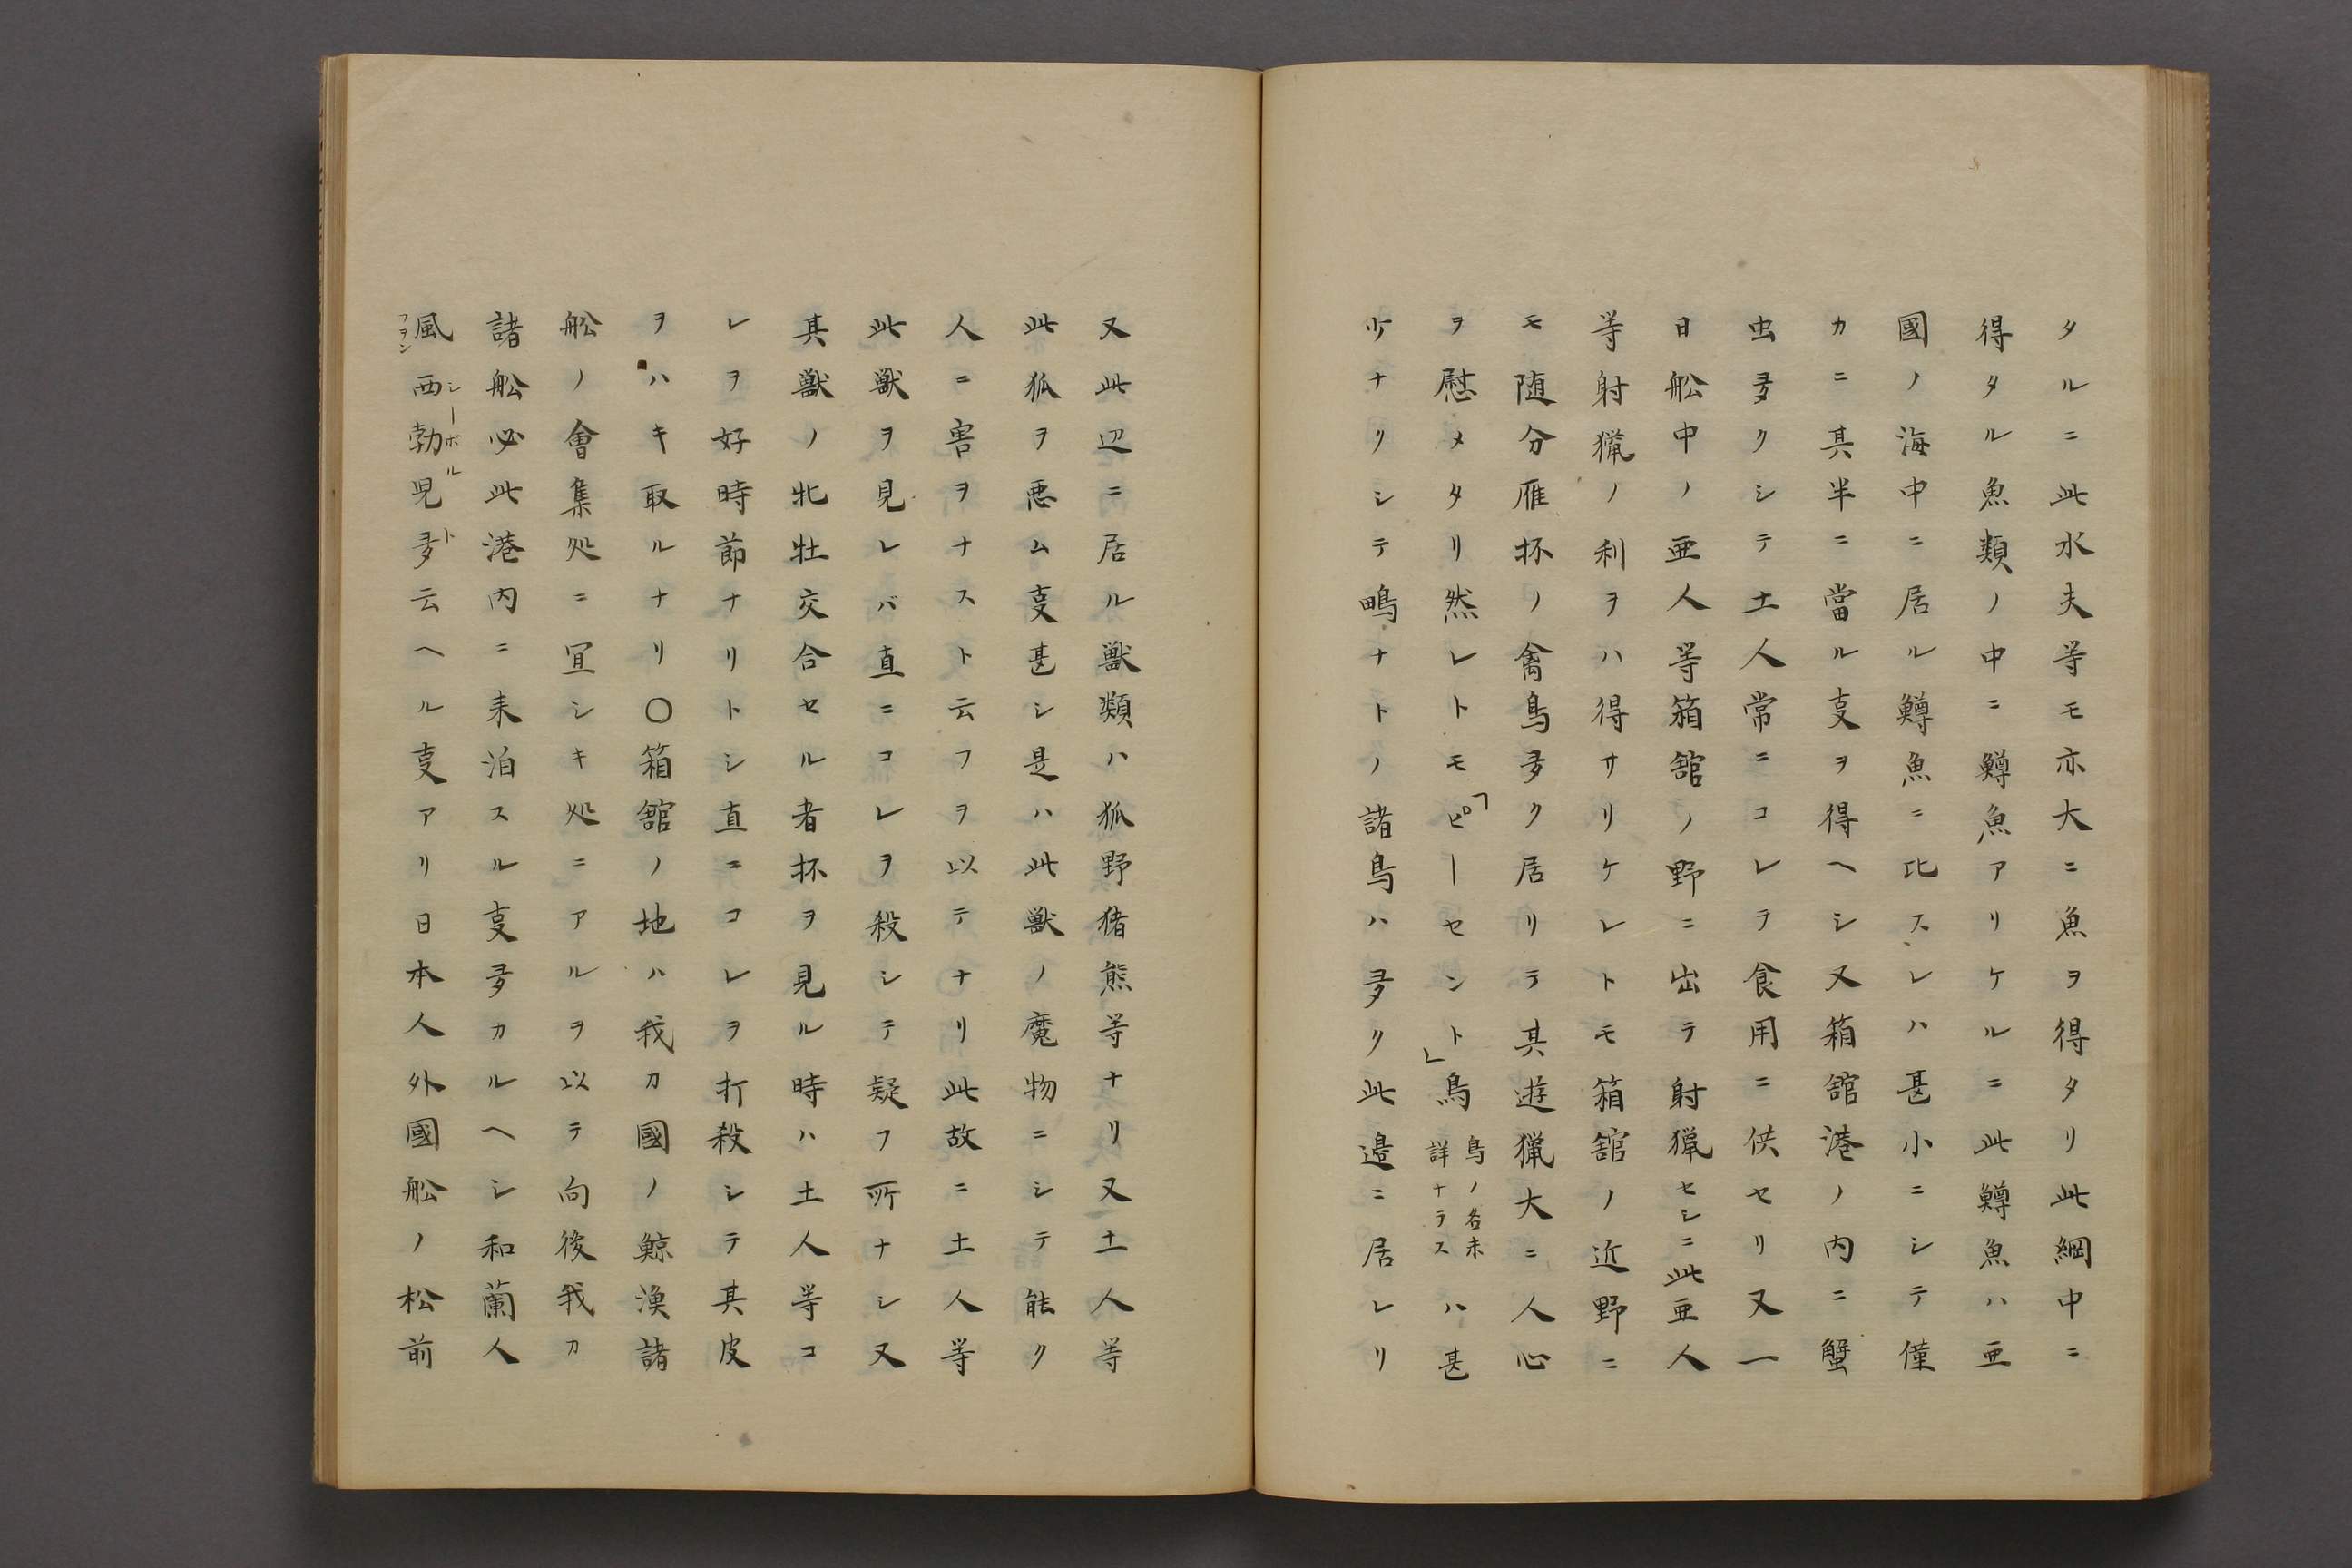 タルニ此水夫等モ亦大ニ魚ヲ得タリ此綱中ニ
得タル魚類ノ中ニ鱒魚アリケルニ此鱒魚ハ亜
國ノ海中ニ居ル鱒魚ニ比スレハ甚小ニシテ僅
カニ其半ニ當ル叓ヲ得ヘシ又箱舘港ノ内ニ蟹
虫夛クシテ土人常ニコレテ食用ニ供セリ又一
日舩中ノ亜人等箱舘ノ野ニ出テ射猟セシニ此亜人
等射猟ノ利ヲハ得サリケレトモ箱舘ノ近野ニ
モ随分雁抔ノ禽鳥夛ク居リテ其遊猟大ニ人心
ヲ慰メタリ然レトモ「ピーセント」鳥鳥ノ名未詳ナラスハ甚
少ナリシテ鴫ナトノ諸鳥ハ夛ク此邉ニ居レリ
又此辺ニ居ル獣類ハ狐野猪熊等ナリ又土人等
此狐ヲ悪ム叓甚シ是ハ此獣ノ魔物ニシテ能ク
人ニ害ヲナスト云フヲ以テナリ此故ニ土人等
此獣ヲ見レバ直ニコレヲ殺シテ疑フ所ナシ又
其獣ノ牝牡交合セル者抔ヲ見ル時ハ土人等コ
レヲ好時節ナリトシ直ニコレヲ打殺シテ其皮
ヲハキ取ルナリ〇箱舘ノ地ハ我カ國ノ鯨漁諸
舩ノ會集処ニ冝シキ処ニアルヲ以テ向後我カ
諸舩必此港内ニ来泊スル叓夛カルヘシ和蘭人
風西勃児夛云ヘル叓アリ日本人外國舩ノ松前
フヲン シーボルト